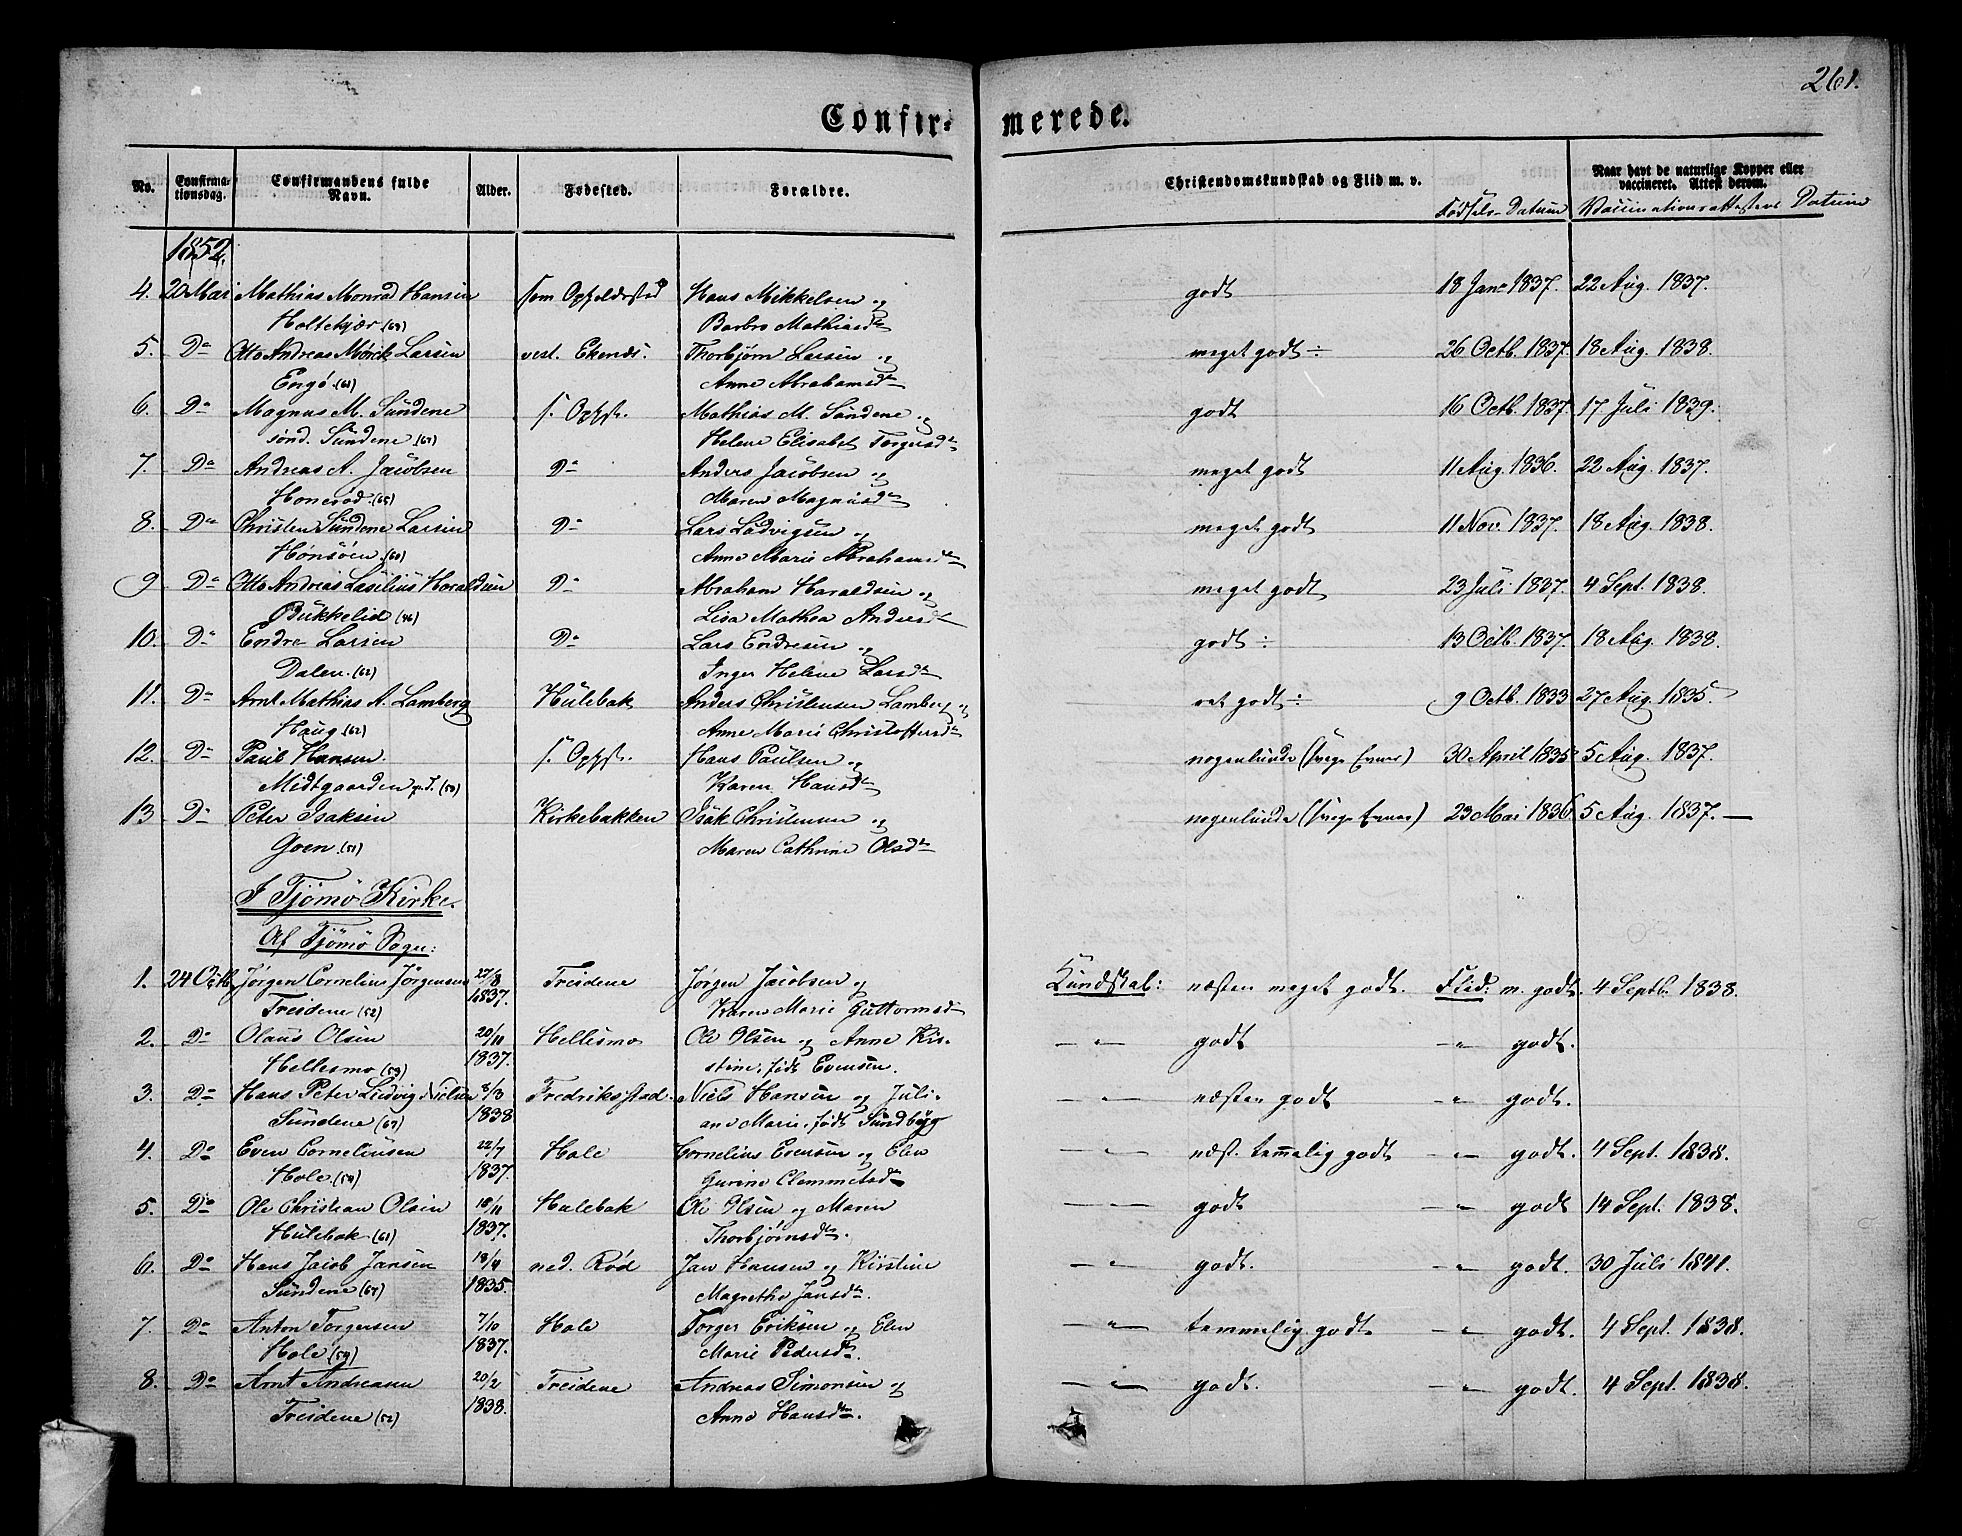 261.
Confir- merede.
No. Confirmationsdag. Confirmandens fulde Navn. Alder. Fødested. Forældre. Christendomskundskab og Flid m. v. Naar havt de naturlige Kopper eller vaccineret. Attest derom.
Fødsels-Datum Vaccinationsattestens Datum
1852.
4. 20 Mai Mathias Monrad Hansen som Opholdssted Hans Mikkelsen og godt 18 Jan. 1837. 22 Aug. 1837.
Holtekjær (69) Barbro Mathiasd.
5. Do Otto Andreas Mørck Larsen vest. Ekenes. Thorbjørn Larsen og meget godt ÷ 26 Octb. 1837. 18 Aug. 1838.
Engø. (63) Anne Abrahamsd.
6. Do Magnus M. Sundene s. Opst. Mathias M. Sundene og godt 16 Octb. 1837. 17 Juli 1839.
sønd. Sundene. (67) Helene Elisabet Torgersd.
7. Do Andreas A. Jacobsen Do Anders Jacobsen og meget godt 11 Aug. 1836. 22 Aug. 1837.
Honerød. (65) Maren Magnusd.
8. Do Christen Sundene Larsen Do Lars Ludvigsen og meget godt 11 Nov. 1837. 18 Aug. 1838.
Hønsøen. (60) Anne Marie Abrahamsd.
9. Do Otto Andreas Basilius Haraldsen Do Abraham Haraldsen og meget godt 23 Juli 1837. 4 Sept. 1838.
Bukkelid (46) Lisa Mathea Andersd.
10. Do Endre Larsen Do Lars Endresen og godt ÷ 13 Octb. 1837. 18 Aug. 1838.
Dalen. (62) Inger Helene Larsd.
11. Do Arnt Mathias A. Lamberg Hulebak Anders Christensen Lamberg og ret godt ÷ 9 Octb. 1833 27 Aug. 1835.
Haug (62) Anne Marie Christoffersd.
12. Do Paul Hansen. s. Opst. Hans Paulsen og nogenlunde (svage Evner) 30 April 1835 5 Aug. 1837.
Midtgaarden p. T. (50) Karen Hansd.
13 Do Peter Isaksen Kirkebakken Isak Christensen og nogenlunde (svage Evner) 23 Mai 1836 5 Aug. 1837. —
Goen. (51) Maren Cathrine Olsd.
I Tjømø Kirke.
Af Tjømø Sogn:
1. 24 Octb. Jørgen Cornelius Jørgensen 27/8 Treidene Jørgen Jacobsen og Kundskab: næsten meget godt. Flid: m. godt. 4 Septb. 1838.
Treidene (52) 1837. Karen Marie Guttormsd.
2. Do Olaus Olsen 20/11 Hellesmo Ole Olsen og Anne Kir- — " — godt — " godt.
Hellesmo (59) 1837. stine, født Evensen.
3. Do Hans Peter Ludvig Nielsen 8/3 Fredriksstad. Niels Hansen og Juli- — " — næsten godt — " godt.
Sundene (67) 1838 ane Marie, født Sundbyg
4. Do Even Corneliusen 22/7 Hole Cornelius Evensen og Elen — " — næst. temmelig godt — " godt. 4 Sept. 1838.
Hole. (54) 1837. Gurine Clemmetsd.
5. Do Ole Christian Olsen 18/11 Hulebak Ole Olsen og Maren — " — godt — " godt 14 Sept. 1838.
Hulebak (61) 1837. Thorbjørnsd.
6. Do Hans Jacob Jansen 18/4 ned. Rød Jan Hansen og Kirstine — " — godt. — " godt. 30 Juli 1841.
Sundene (67) 1835. Magrethe Jansd.
7. Do Anton Torgersen 7/10 Hole Torger Eriksen og Elen — " — temmelig godt — " godt. 4 Sept. 1838.
Hole (54) 1837. Marie Pedersd.
8. Do Arnt Andreasen 20/2 Treidene Andreas Simonsen og — " — godt. — " godt. 4 Sept. 1838.
Treidene (52) 1838. Anne Hansd.